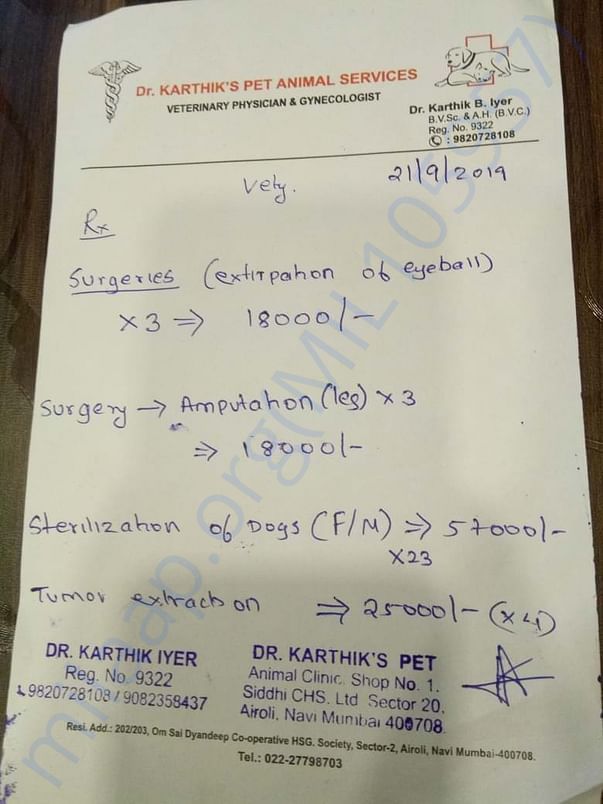 Dr. KARTHIK'S PET ANIMAL SERVICES
VETERINARY PHYSICIAN & GYNECOLOGIST
Dr. Karthik B. Iyer
B.V.Sc. & A.H. (B.V.C.)
Reg. No. 9322
: 9820728108
21/9/2019
Rx
Surgeries (extirpation of eyeball)
x3 ⇒ 18000/-
Surgery → Amputation (leg) x 3
⇒ 18000/-
Sterilization of Dogs (F/M) ⇒ 57000/-
x23
Tumor extraction ⇒ 25000/- (x4)
DR. KARTHIK IYER
Reg. No. 9322
9820728108 / 9082358437
DR. KARTHIK'S PET
Animal Clinic, Shop No. 1.
Siddhi CHS. Ltd Sector 20.
Airoli, Navi Mumbai 400708.
Resi. Add.: 202/203, Om Sai Dyandeep Co-operative HSG. Society, Sector-2, Airoli, Navi Mumbai-400708.
Tel.: 022-27798703